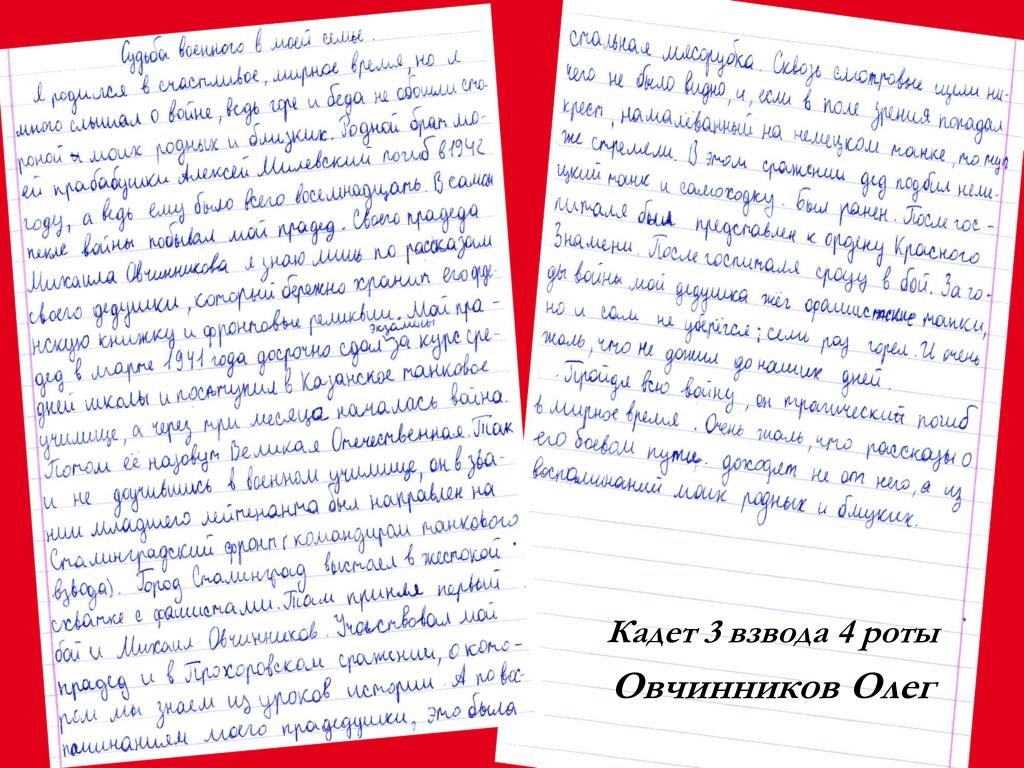 Судьба военного в моей семье.
Я родился в счастливое, мирное время, но я
много слышал о войне, ведь горе и беда не обошли сто-
роной и моих родных и близких. Родной брат мо-
ей прабабушки Алексей Милевский погиб в 1942
году, а ведь ему было всего восемнадцать. В самом
пекле войны побывал мой прадед. Своего прадеда
Михаила Овчинникова я знаю лишь по рассказам
своего дедушки, который бережно хранит его орде-
нскую книжку и фронтовые реликвии. Мой пра-
дед в марте 1941 года досрочно сдал экзамены за курс сре-
дней школы и поступил в Казанское танковое
училище, а через три месяца началась война.
Потом её назовут Великая Отечественная. Так
и не доучившись в военном училище, он в зва-
нии младшего лейтенанта был направлен на
Сталинградский фронт (командиром танкового
взвода). Город Сталинград выстоял в жестокой
схватке с фашистами. Там принял первый
бой и Михаил Овчинников. Участвовал мой
прадед и в Прохоровском сражении, о кото-
ром мы знаем из уроков истории. А по вос-
поминаниям моего прадедушки, это была
стальная мясорубка. Сквозь смотровые щели ни-
чего не было видно, и, если в поле зрения попадал
крест, намалёванный на немецком танке, то тут
же стреляли. В этом сражении дед подбил неме-
цкий танк и самоходку. Был ранен. После гос-
питаля был представлен к ордену Красного
Знамени. После госпиталя сразу в бой. За го-
ды войны мой дедушка жёг фашистские танки,
но и сам не уберёгся; семь раз горел. И очень
жаль, что не дожил до наших дней.
Пройдя всю войну, он трагический погиб
в мирное время. Очень жаль, что рассказы о
его боевом пути доходят не от него, а из
воспоминаний моих родных и близких.
Кадет 3 взвода 4 роты
Овчинников Олег